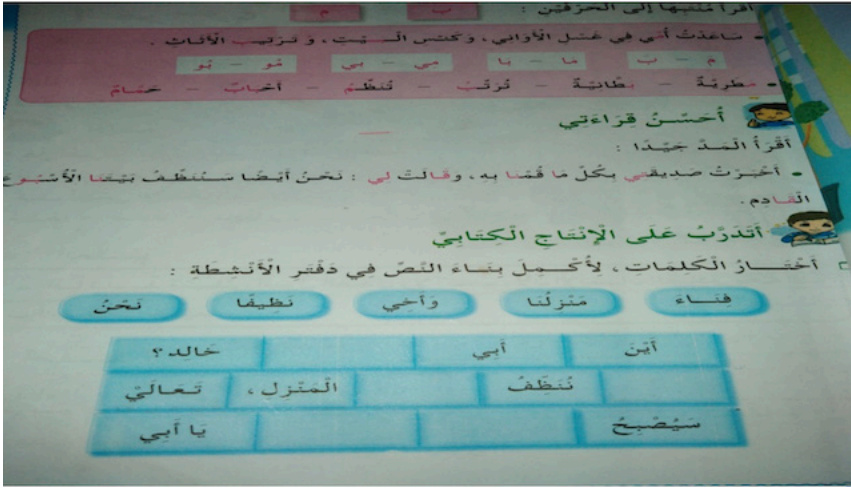 أقرأ منتبها إلى الحرفين : ب م
• سَاعَدْتُ أُمِّي فِي غَسْلِ الْأَوَانِي، وَكَنْسِ الْبَيْتِ، وَ تَرْتِيبِ الْأَثَاثِ .
م – ب مَا – بَا مِي – بِي مُو – بُو
• مِطْرِيَّةٌ – بَطَّانِيَّةٌ – تُرَتِّبُ – تُنَظِّمُ – أَحْبَابٌ – حَمَامٌ
أُحَسِّنُ قِرَاءَتِي
أَقْرَأُ الْمَدَّ جَيِّدًا :
• أَخْبَرْتُ صَدِيقَتِي بِكُلِّ مَا قُمْنَا بِهِ، وَقَالَتْ لِي : نَحْنُ أَيْضًا سَنُنَظِّفُ بَيْتَنَا الْأُسْبُوعَ
الْقَادِمَ .
أَتَدَرَّبُ عَلَى الْإِنْتَاجِ الْكِتَابِيِّ
أَخْتَارُ الْكَلِمَاتِ، لِأُكْمِلَ بِنَاءَ النَّصِّ فِي دَفْتَرِ الْأَنْشِطَةِ :
فِنَاءَ مَنْزِلُنَا وَأَخِي نَظِيفًا نَحْنُ
أَيْنَ أَبِي خَالِد؟
نُنَظِّفُ الْمَنْزِلِ، تَعَالَيْ
سَيُصْبِحُ يَا أَبِي